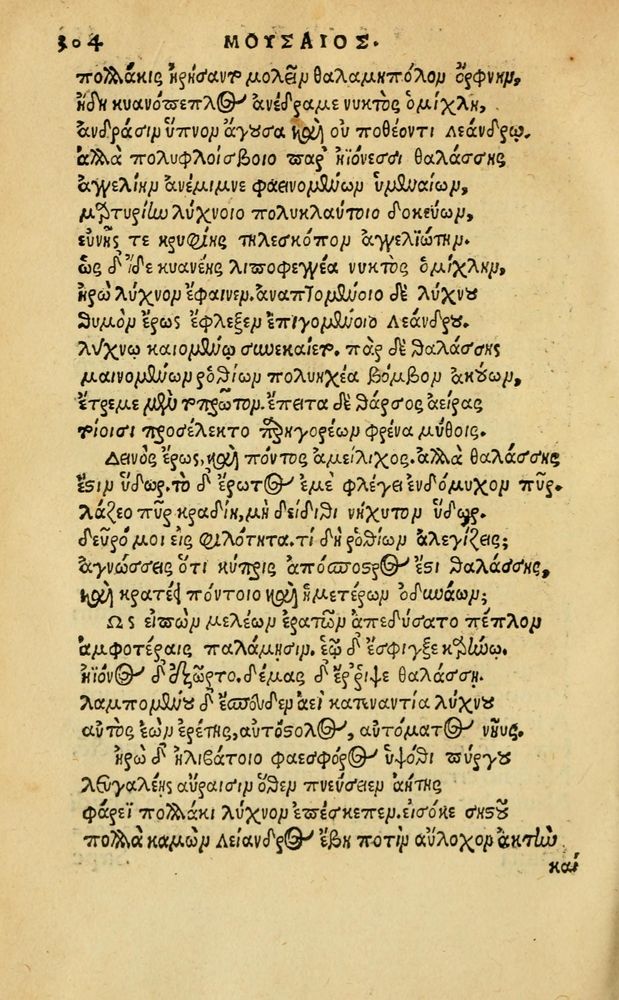 304 ΜΟΥΣΑΙΟΣ.
πολλάκις ἠρήσαντο μολεῖν θαλαμηπόλον ὄρφνην,
ἤδη κυανόπεπλος ἀνέδραμε νυκτὸς ὁμίχλη,
ἀνδράσιν ὕπνον ἄγουσα καὶ οὐ ποθέοντι Λεάνδρῳ.
ἀλλὰ πολυφλοίσβοιο παρ' ἠϊόνεσσι θαλάσσης
ἀγγελίην ἀνέμιμνε φαεινομένων ὑμεναίων,
μαρτυρίην λύχνοιο πολυκλαύτοιο δοκεύων,
εὐνῆς τε κρυφίης τηλεσκόπον ἀγγελιώτην.
ὡς δ' ἴδε κυανέης λιποφεγγέα νυκτὸς ὁμίχλην,
ἡρὼ λύχνον ἔφαινεν. ἀναπτομένοιο δὲ λύχνου
θυμὸν ἔρως ἔφλεξεν ἐπιγομένοιο Λεάνδρου.
λύχνῳ καιομένῳ συνεκαίετο. πὰρ δὲ θαλάσσης
μαινομένων ῥοθίων πολυηχέα βόμβον ἀκούων,
ἔτρεμε μὲν τὸ πρῶτον. ἔπειτα δὲ θάρσος ἀείρας
τοίοισι προσέλεκτο παρηγορέων φρένα μύθοις.
Δεινὸς ἔρως, καὶ πόντος ἀμείλιχος. ἀλλὰ θαλάσσης
ἐστὶν ὕδωρ. τὸ δ' ἔρωτος ἐμὲ φλέγει ἐνδόμυχον πῦρ.
λάζεο πῦρ κραδίη, μὴ δείδιθι νήχυτον ὕδωρ.
δεῦρό μοι εἰς φιλότητα. τί δὴ ῥοθίων ἀλεγίζεις;
ἀγνώσσεις ὅτι κύπρις ἀπόσπορός ἐστι θαλάσσης,
καὶ κρατέει πόντοιο καὶ ἡμετέρων ὀδυνάων;
Ὣς εἰπὼν μελέων ἐρατῶν ἀπεδύσατο πέπλον
ἀμφοτέραις παλάμῃσιν. ἑῷ δ' ἔσφιγξε καρήνῳ.
ἠϊόνος δ' ἐξῶρτο. δέμας δ' ἔρριψε θαλάσσῃ.
λαμπομένου δ' ἔσπευδεν ἀεὶ καπναντία λύχνου
αὐτὸς ἐὼν ἐρέτης, αὐτόστολος, αὐτόματος νηῦς.
ἡρὼ δ' ἠλιβάτοιο φαεσφόρος ὑψόθι πύργου
λευγαλέης αὔραισιν ὅθεν πνεύσειεν ἀήτης
φάρεϊ πολλάκι λύχνον ἐπέσκεπεν. εἰσόκε σηστοῦ
πολλὰ καμὼν Λείανδρος ἔβη ποτὶν αὔλοχον ἀκτὴν
καὶ